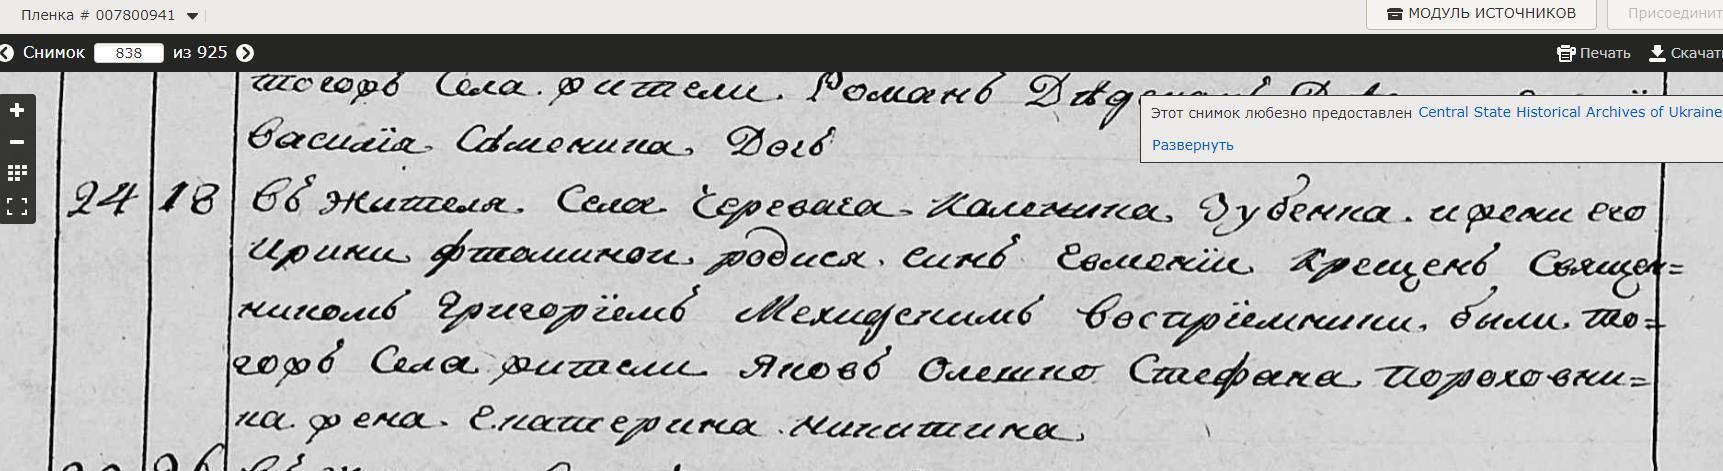 Пленка # 007800941
МОДУЛЬ ИСТОЧНИКОВ
Присоединит
Снимок 838 из 925
Печать
Скачать
Этот снимок любезно предоставлен Central State Historical Archives of Ukraine
Развернуть
тогожъ Села жители Романъ
Василїя Сѣменика Дочь
24 18 въ жителя Села Черевача Каленика Зубенка и жени его
Ирини родися синъ Евменїи Крещенъ Священ=
никомъ Григорїемъ Воспрїемники были то=
гожъ Села жители Яковъ Олешко Стефана Пороховни=
ка жена Екатерина Никитина
26